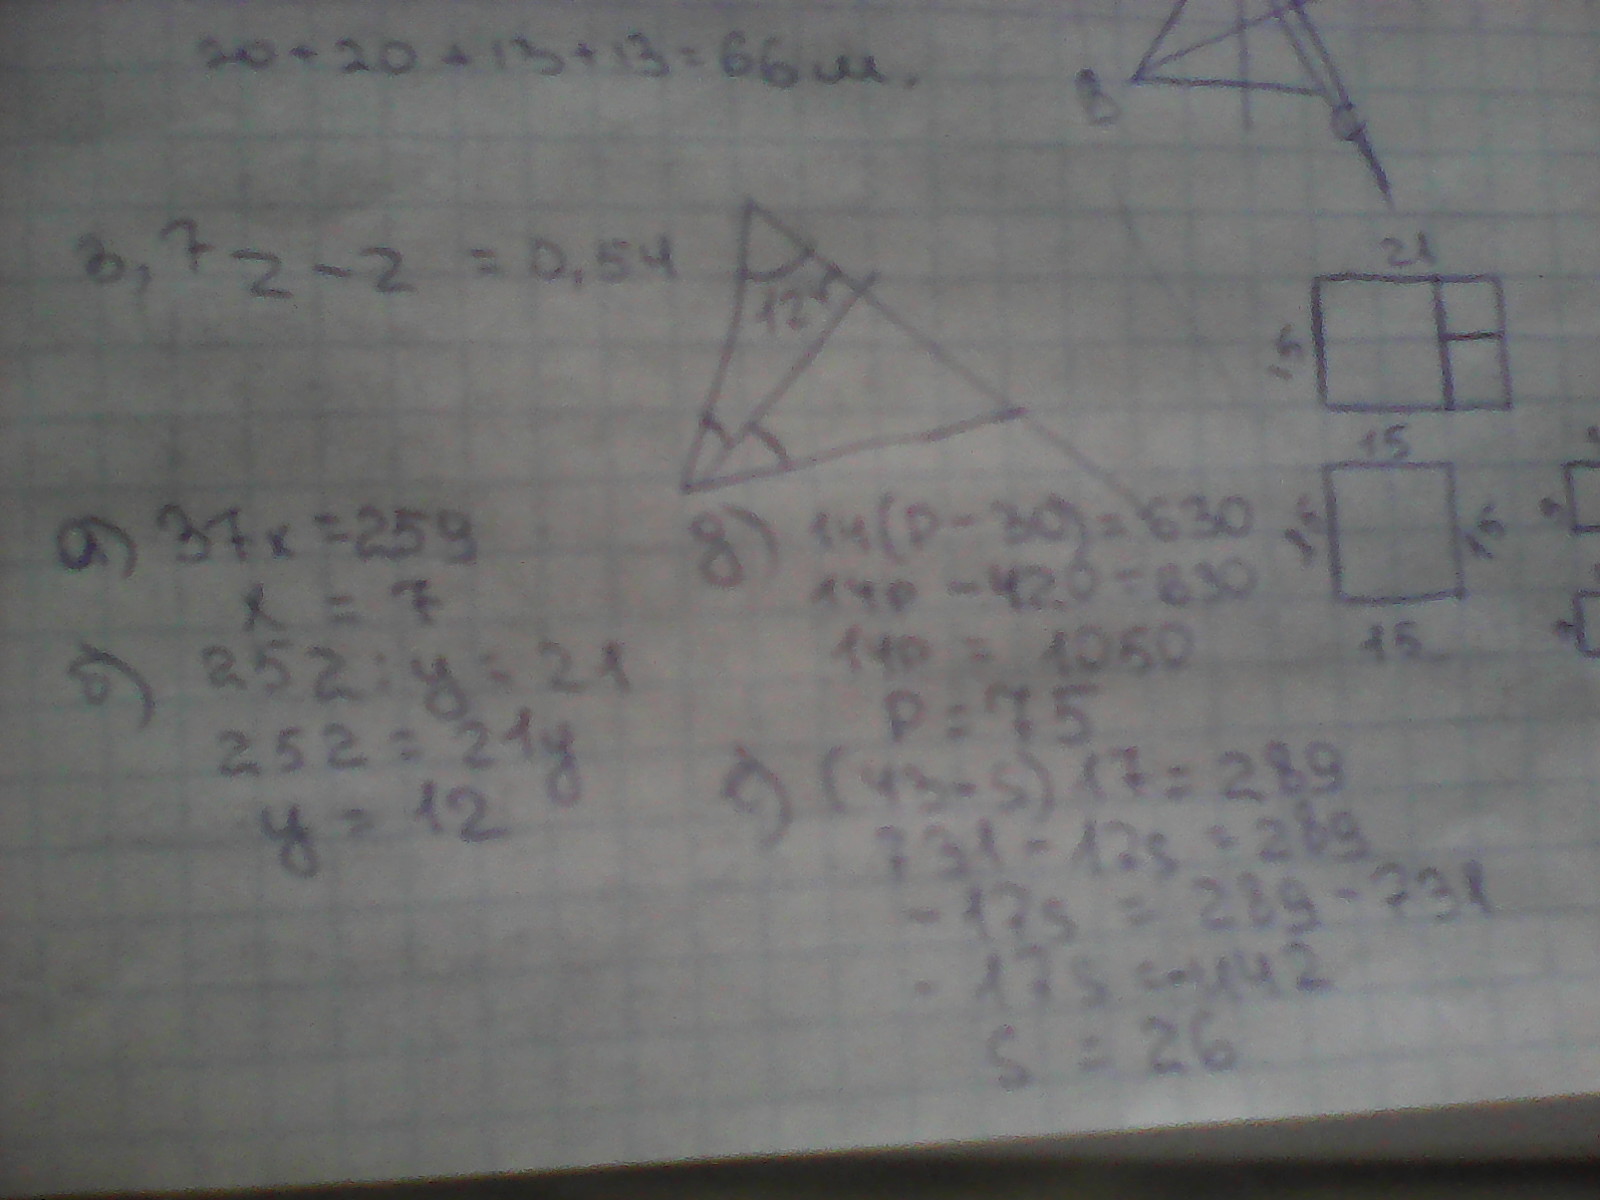 20+20+13+13=66м.
B
C
3,7z-z=0,54
12
21
15
а) 37x=259
x=7
б) 252:y=21
252=21y
y=12
д) 14(p-30)=630
14p-420=630
14p=1050
p=75
е) (43-s)17=289
731-17s=289
-17s=289-731
-17s=-442
s=26
15